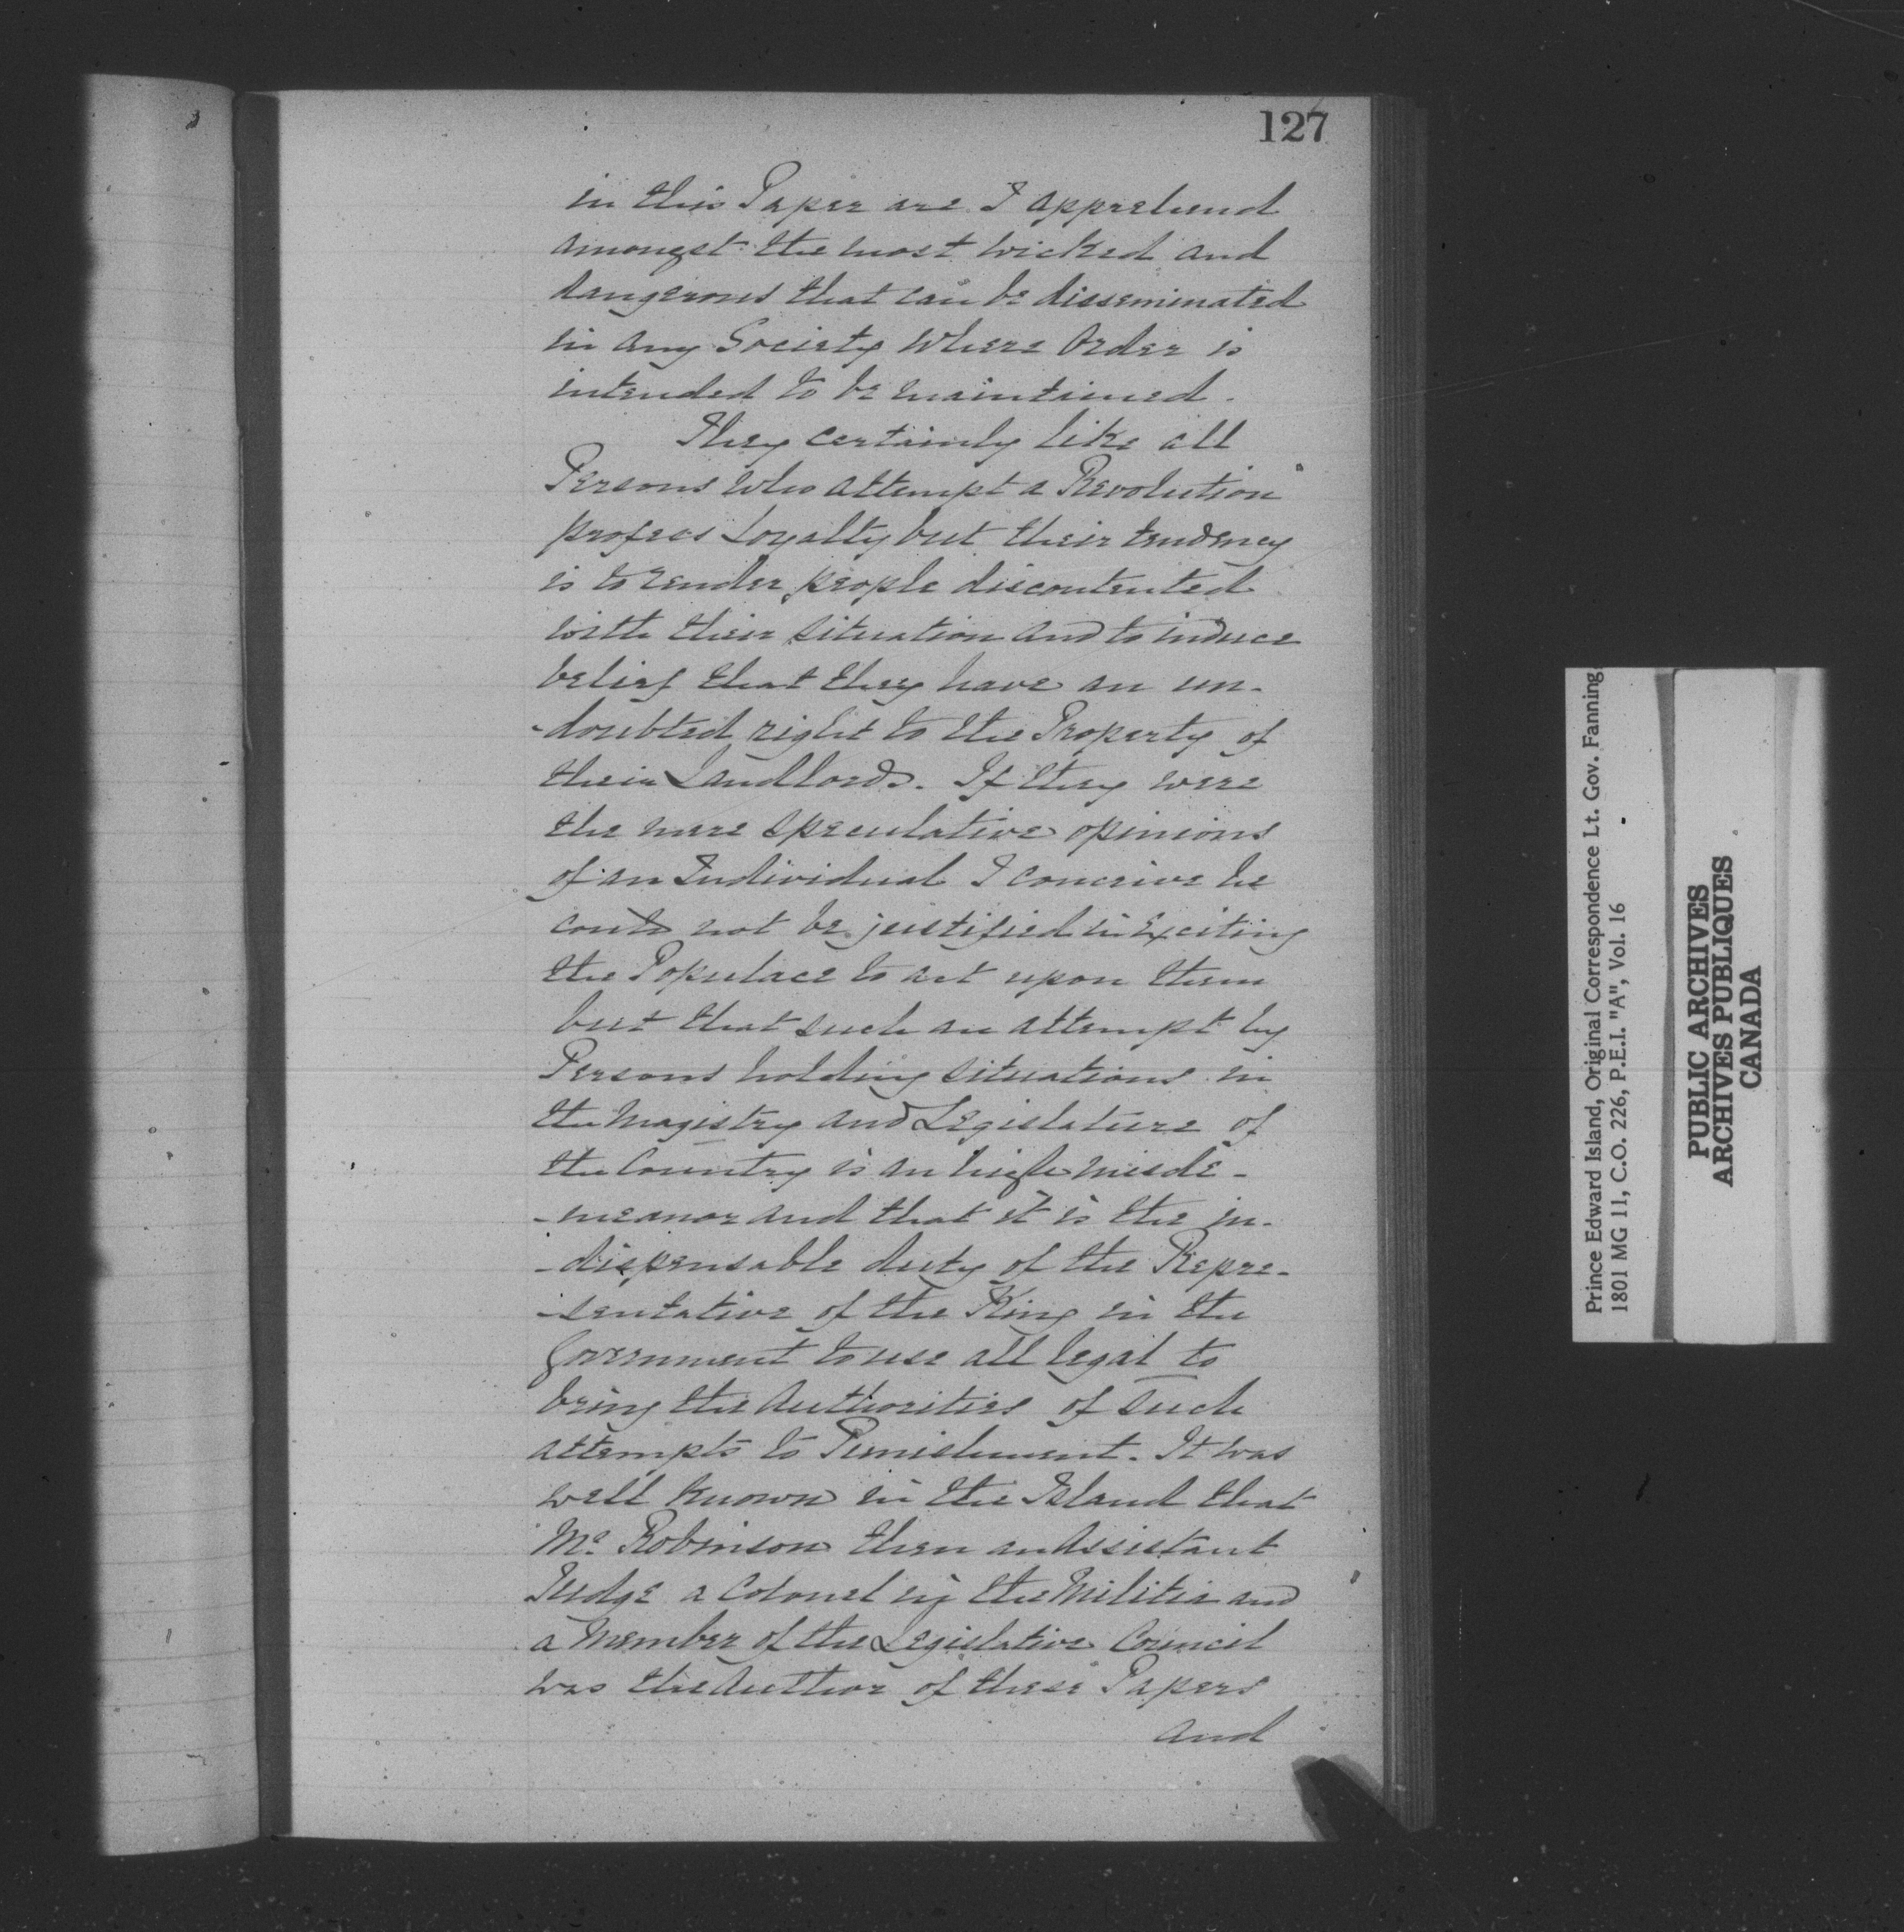 127
in this Paper are I apprehend
amongst the most wicked and
dangerous that can be disseminated
in any Society where Order is
intended to be maintained.
They certainly like all
Persons who attempt a Revolution
profess Loyalty but their tendency
is to render people discontented
with their situation and to induce
belief that they have an un-
-doubted right to the Property of
their Landlords. If they were
the mere speculative opinions
of an Individual I conceive he
could not be justified in exciting
the Populace to act upon them
but that such an attempt by
Persons holding situations in
the Magistry and Legislature of
the Country is an high misde-
-meanor and that it is the in-
-dispensable duty of the Repre-
-sentative of the King in the
Government to use all legal to
bring the Authorities of such
attempts to Punishment. It was
well known in the Island that
Mr. Robinson then an Assistant
Judge a Colonel in the Militia and
a Member of the Legislative Council
was the Author of these Papers
and
Prince Edward Island, Original Correspondence Lt. Gov. Fanning
1801 MG 11, C.O. 226, P.E.I. "A", Vol. 16
PUBLIC ARCHIVES
ARCHIVES PUBLIQUES
CANADA